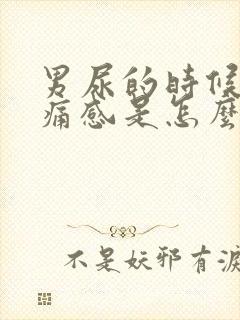 男尿的時候
痛感是怎麼
不是妖邪有淚